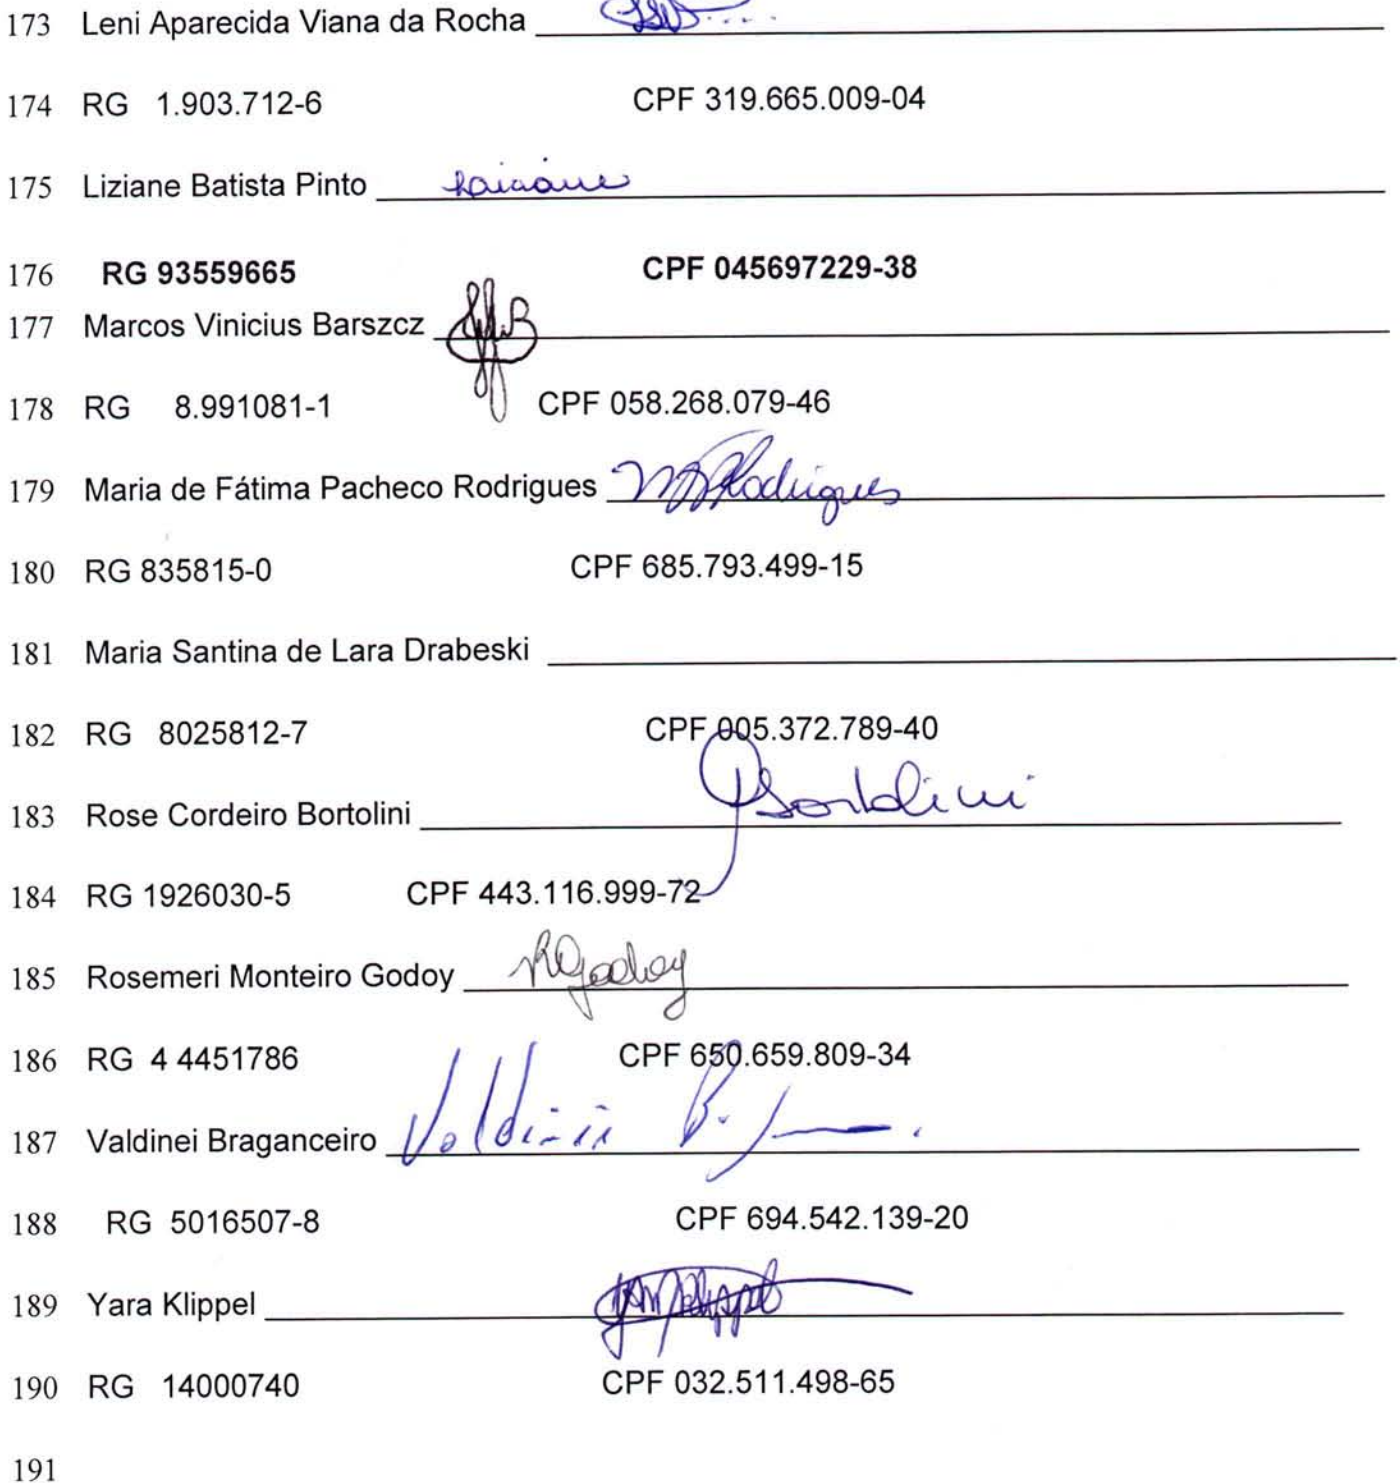 173 Leni Aparecida Viana da Rocha
174 RG 1.903.712-6 CPF 319.665.009-04
175 Liziane Batista Pinto
176 RG 93559665 CPF 045697229-38
177 Marcos Vinicius Barszcz
178 RG 8.991081-1 CPF 058.268.079-46
179 Maria de Fátima Pacheco Rodrigues MFRodrigues
180 RG 835815-0 CPF 685.793.499-15
181 Maria Santina de Lara Drabeski
182 RG 8025812-7 CPF 005.372.789-40
183 Rose Cordeiro Bortolini RBortolini
184 RG 1926030-5 CPF 443.116.999-72
185 Rosemeri Monteiro Godoy RGodoy
186 RG 4 4451786 CPF 650.659.809-34
187 Valdinei Braganceiro Valdinei B.
188 RG 5016507-8 CPF 694.542.139-20
189 Yara Klippel
190 RG 14000740 CPF 032.511.498-65
191